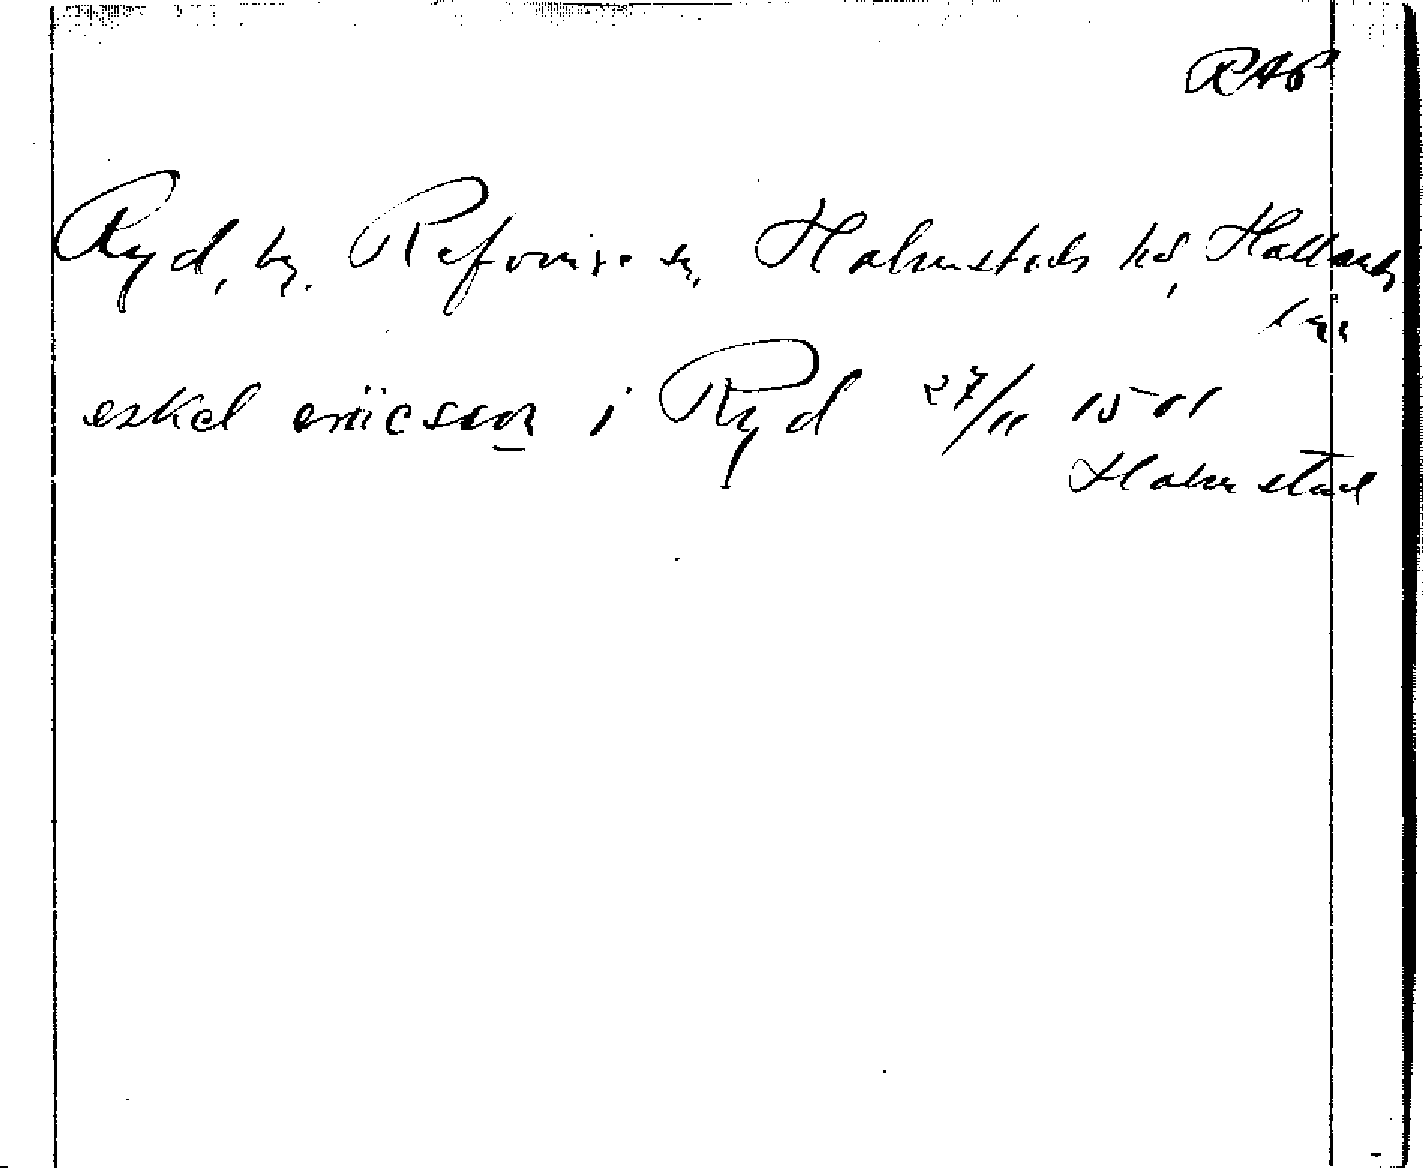 RAP
Ryd, by, Refvinge sn, Halmstads hd, Hallands
län
eskel eriicson i Ryd 27/11 1501
Halmstad